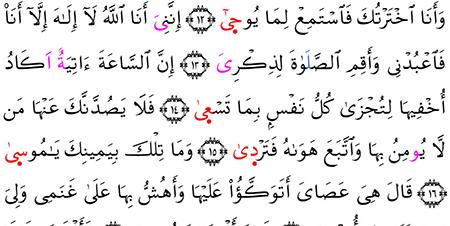 وَأَنَا ٱخْتَرْتُكَ فَٱسْتَمِعْ لِمَا يُوحِىٰٓ ﴿١٢﴾ إِنَّنِىَ أَنَا ٱللَّهُ لَآ إِلَٰهَ إِلَّآ أَنَا۠
فَٱعْبُدْنِى وَأَقِمِ ٱلصَّلَوٰةَ لِذِكْرِىَ ﴿١٣﴾ إِنَّ ٱلسَّاعَةَ ءَاتِيَةٌ اَكَادُ
أُخْفِيهَا لِتُجْزَىٰ كُلُّ نَفْسٍۭ بِمَا تَسْعِىٰ ﴿١٤﴾ فَلَا يَصُدَّنَّكَ عَنْهَا مَن
لَّا يُومِنُ بِهَا وَٱتَّبَعَ هَوَىٰهُ فَتَرْدِىٰ ﴿١٥﴾ وَمَا تِلْكَ بِيَمِينِكَ يَٰمُوسِىٰ
﴿١٦﴾ قَالَ هِىَ عَصَاىَ أَتَوَكَّؤُا۟ عَلَيْهَا وَأَهُشُّ بِهَا عَلَىٰ غَنَمِى وَلِىَ